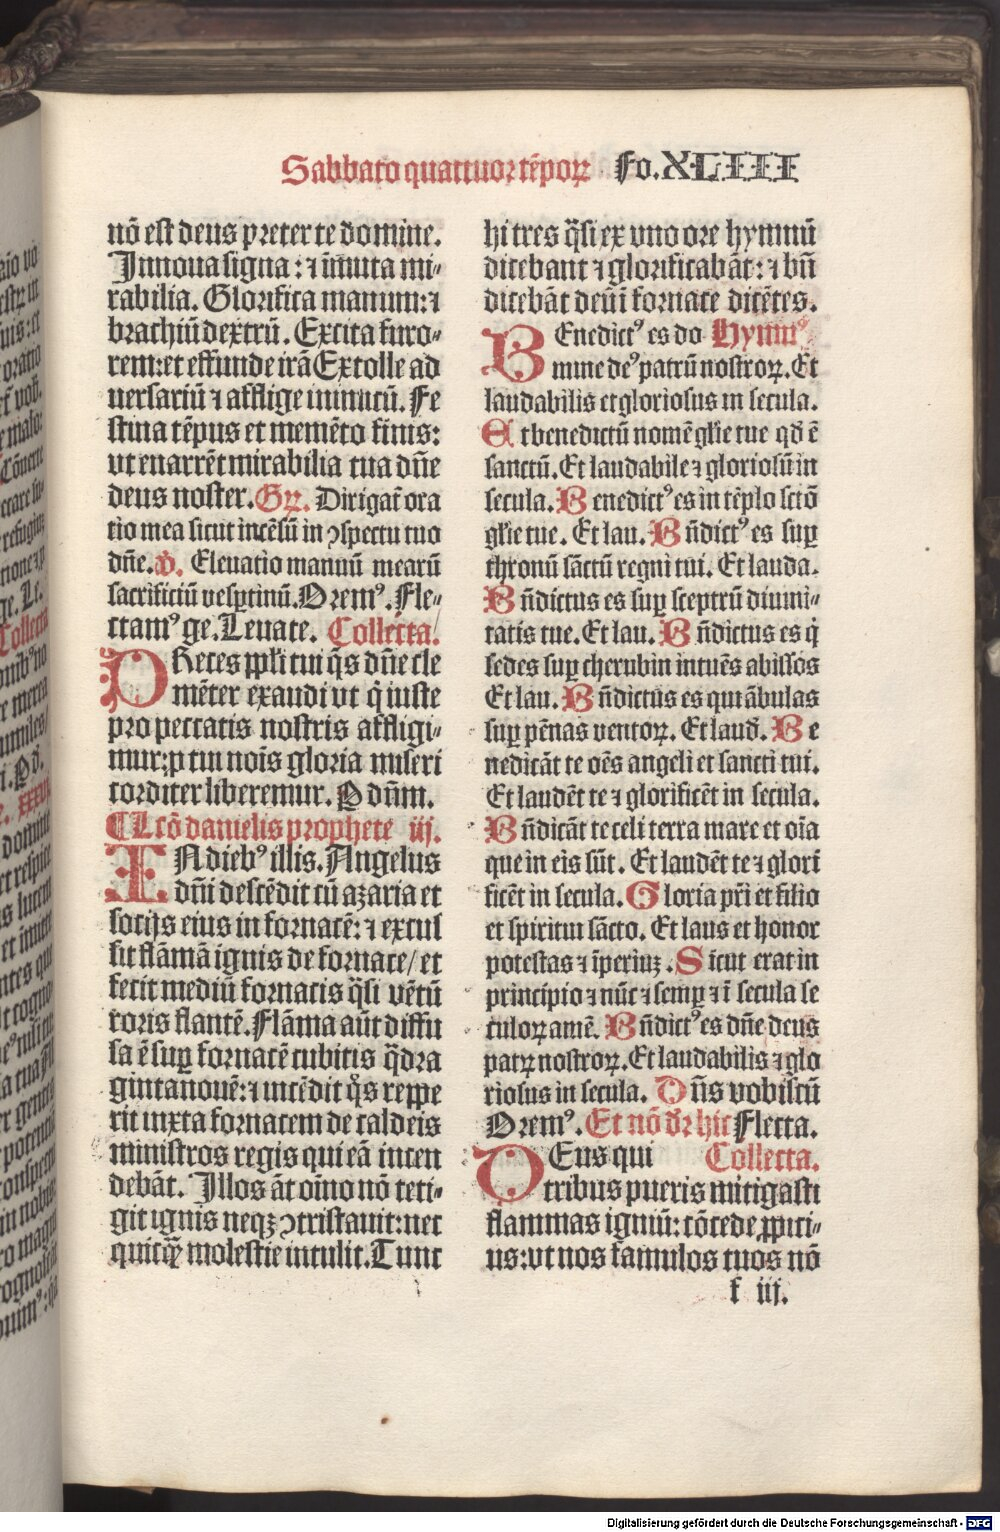 Sabbato quattuor tẽpoꝝ Fo. XLIII
nõ est deus preter te domine.
Innoua signa: ⁊ ĩmuta mi⸗
rabilia. Glorifica manum: ⁊
brachiũ dextrũ. Excita furo⸗
rem: et effunde irã Extolle ad
uersariũ ⁊ afflige inimicũ. Fe
stina tẽpus et memẽto finis:
vt enarrẽt mirabilia tua dñe
deus noster. Gꝝ. Dirigat̃ ora
tio mea sicut incẽsũ in ꝯspectu tuo
dñe. v̉. Eleuatio manuũ mearũ
sacrificiũ vesꝑtinũ. Oremꝰ. Fle⸗
ctamꝰ ge. Leuate. Collecta.
PReces ppl̃i tui q̃s dñe cle
mẽter exaudi vt q̇ iuste
pro peccatis nostris affligi⸗
mur: ꝓ tui nois̃ gloria miseri
corditer liberemur. P dñm.
¶ Lcõ danielis prophete iij.
IN diebꝰ illis. Angelus
dñi descẽdit cũ azaria et
socijs eius in fornacẽ: ⁊ excus
sit flãmã ignis de fornace/ et
fecit mediũ fornacis q̃si vẽtũ
roris flantẽ. Flãma aũt diffu
sa ẽ suꝑ fornacẽ cubitis q̃dra
gintanouẽ: ⁊ incẽdit q̇s reppe
rit iuxta fornacem de caldeis
ministros regis qui eã incen
debãt. Illos ãt oĩno nõ teti⸗
git ignis neqꝫ ꝯtristauit: nec
quicq̃ molestie intulit. Tunc
hi tres q̃si ex vno ore hymnũ
dicebant ⁊ glorificabãt: ⁊ bñ
dicebãt deũ ĩ fornace dicẽtes.
BEnedictꝰ es do Hymnꝰ
mine deꝰ patrũ nostroꝝ. Et
laudabilis et gloriosus in secula.
Et benedictũ nomẽ glie tue qđ ẽ
sanctũ. Et laudabile ⁊ gloriosũ in
secula. Benedictꝰ es in tẽplo sctõ
glie tue. Et lau. Bñdictꝰ es suꝑ
thronũ sãctũ regni tui. Et lauda.
Bñdictus es suꝑ sceptrũ diuini⸗
tatis tue. Et lau. Bñdictus es q̇
sedes suꝑ cherubin intuẽs abissos
Et lau. Bñdictus es qui ãbulas
suꝑ pẽnas ventoꝝ. Et lauđ. Be
nedicãt te oẽs angeli et sancti tui.
Et laudẽt te ⁊ glorificẽt in secula.
Bñdicãt te celi terra mare et oĩa
que in eis sũt. Et laudẽt te ⁊ glori
ficẽt in secula. Gloria pr̃i et filio
et spiritui sãcto. Et laus et honor
potestas ⁊ ĩperiuꝫ. Sicut erat in
principio ⁊ nũc ⁊ semꝑ ⁊ ĩ secula se
culoꝝ amẽ. Bñdictꝰ es dñe deus
patꝝ nostroꝝ. Et laudabilis ⁊ glo
riosus in secula. Dñs vobiscũ
Oremꝰ. Et nõ dr̃ hic Flecta.
DEus qui Collecta.
tribus pueris mitigasti
flammas igniũ: cõcede ꝓpici⸗
us: vt nos famulos tuos nõ
f iij.
Digitalisierung gefördert durch die Deutsche Forschungsgemeinschaft - DFG